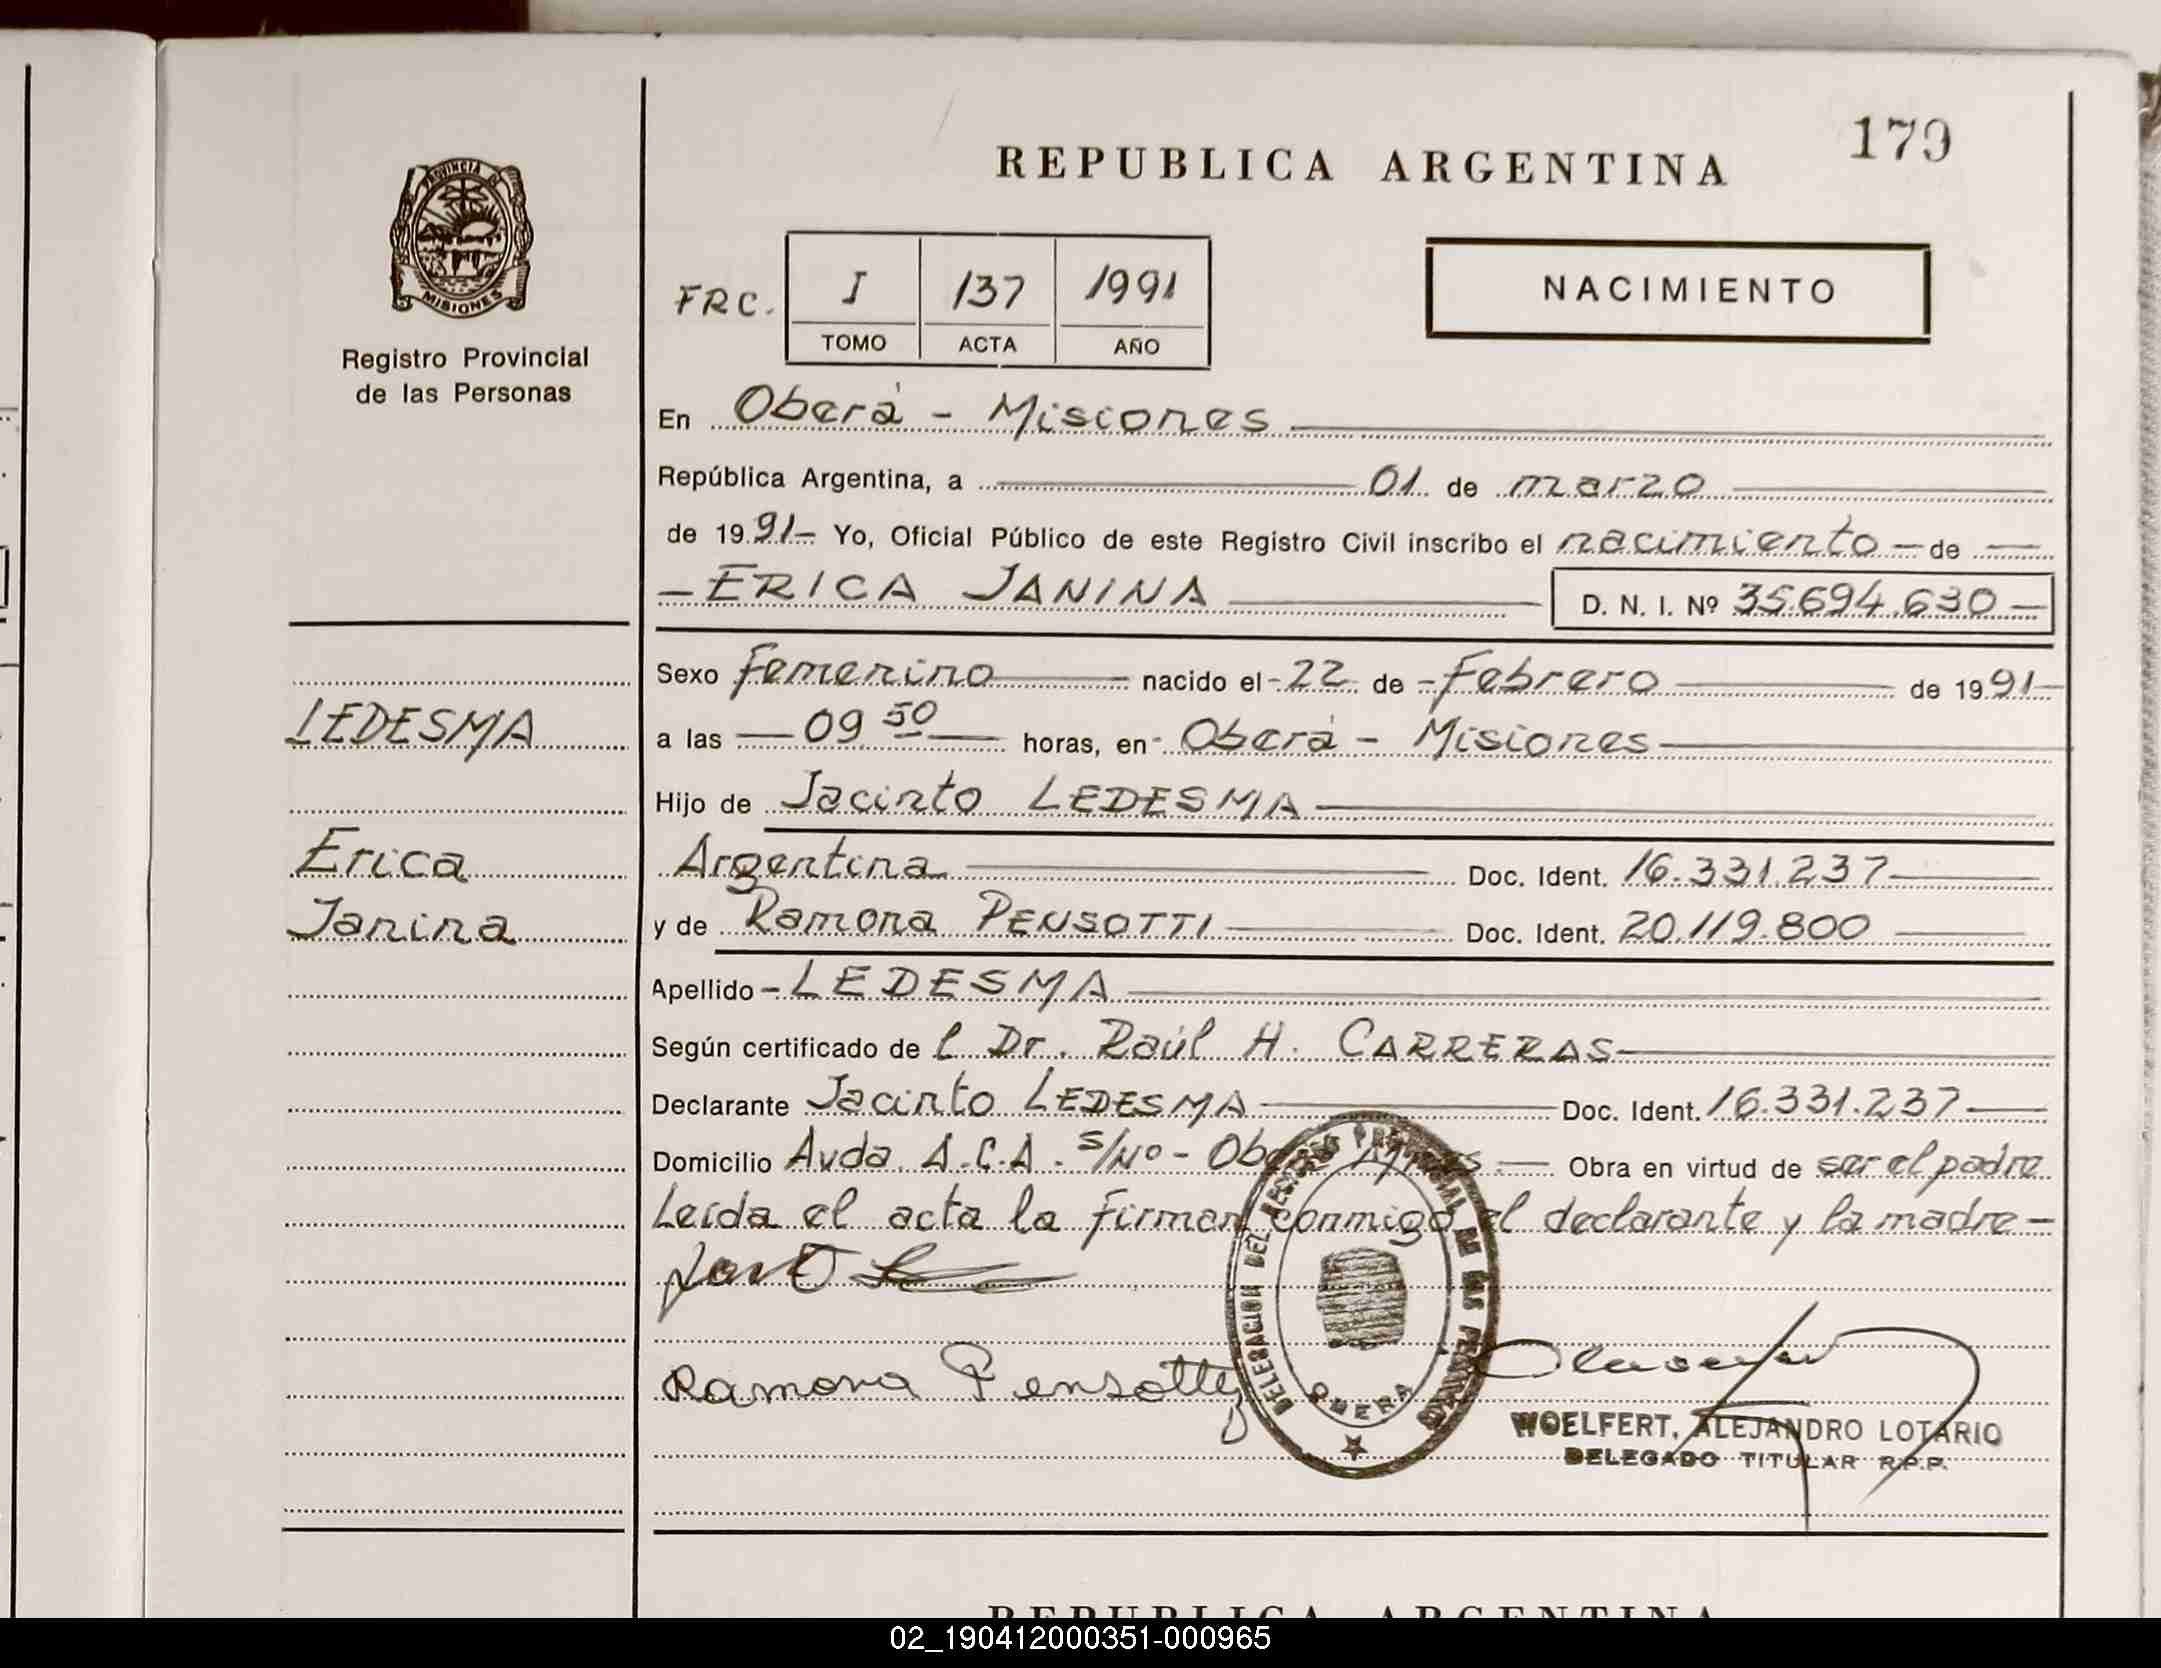 PROVINCIA DE
MISIONES
Registro Provincial
de las Personas
LEDESMA
Erica
Janina
REPUBLICA ARGENTINA
179
FRC.
I 137 1991
TOMO ACTA AÑO
NACIMIENTO
En Oberá - Misiones
República Argentina, a 01 de marzo
de 1991- Yo, Oficial Público de este Registro Civil inscribo el nacimiento - de
- ERICA JANINA
D. N. I. Nº 35.694.630
Sexo Femenino nacido el - 22 de - Febrero de 1991-
a las 09 50 horas, en - Oberá - Misiones
Hijo de Jacinto LEDESMA
Argentina Doc. Ident. 16.331.237
y de Ramona PENSOTTI Doc. Ident. 20.119.800
Apellido - LEDESMA
Según certificado de l Dr. Raúl H. CARRERAS
Declarante Jacinto LEDESMA Doc. Ident. 16.331.237
Domicilio Avda. A.C.A. s/Nº - Obra en virtud de ser el padre
Leída el acta la firman conmigo el declarante y la madre -
Ramona Pensotty
DELEGACION DEL REGISTRO PROVINCIAL DE LAS PERSONAS
OBERA
WOELFERT, ALEJANDRO LOTARIO
DELEGADO TITULAR R.P.P.
REPUBLICA ARGENTINA
02_190412000351-000965